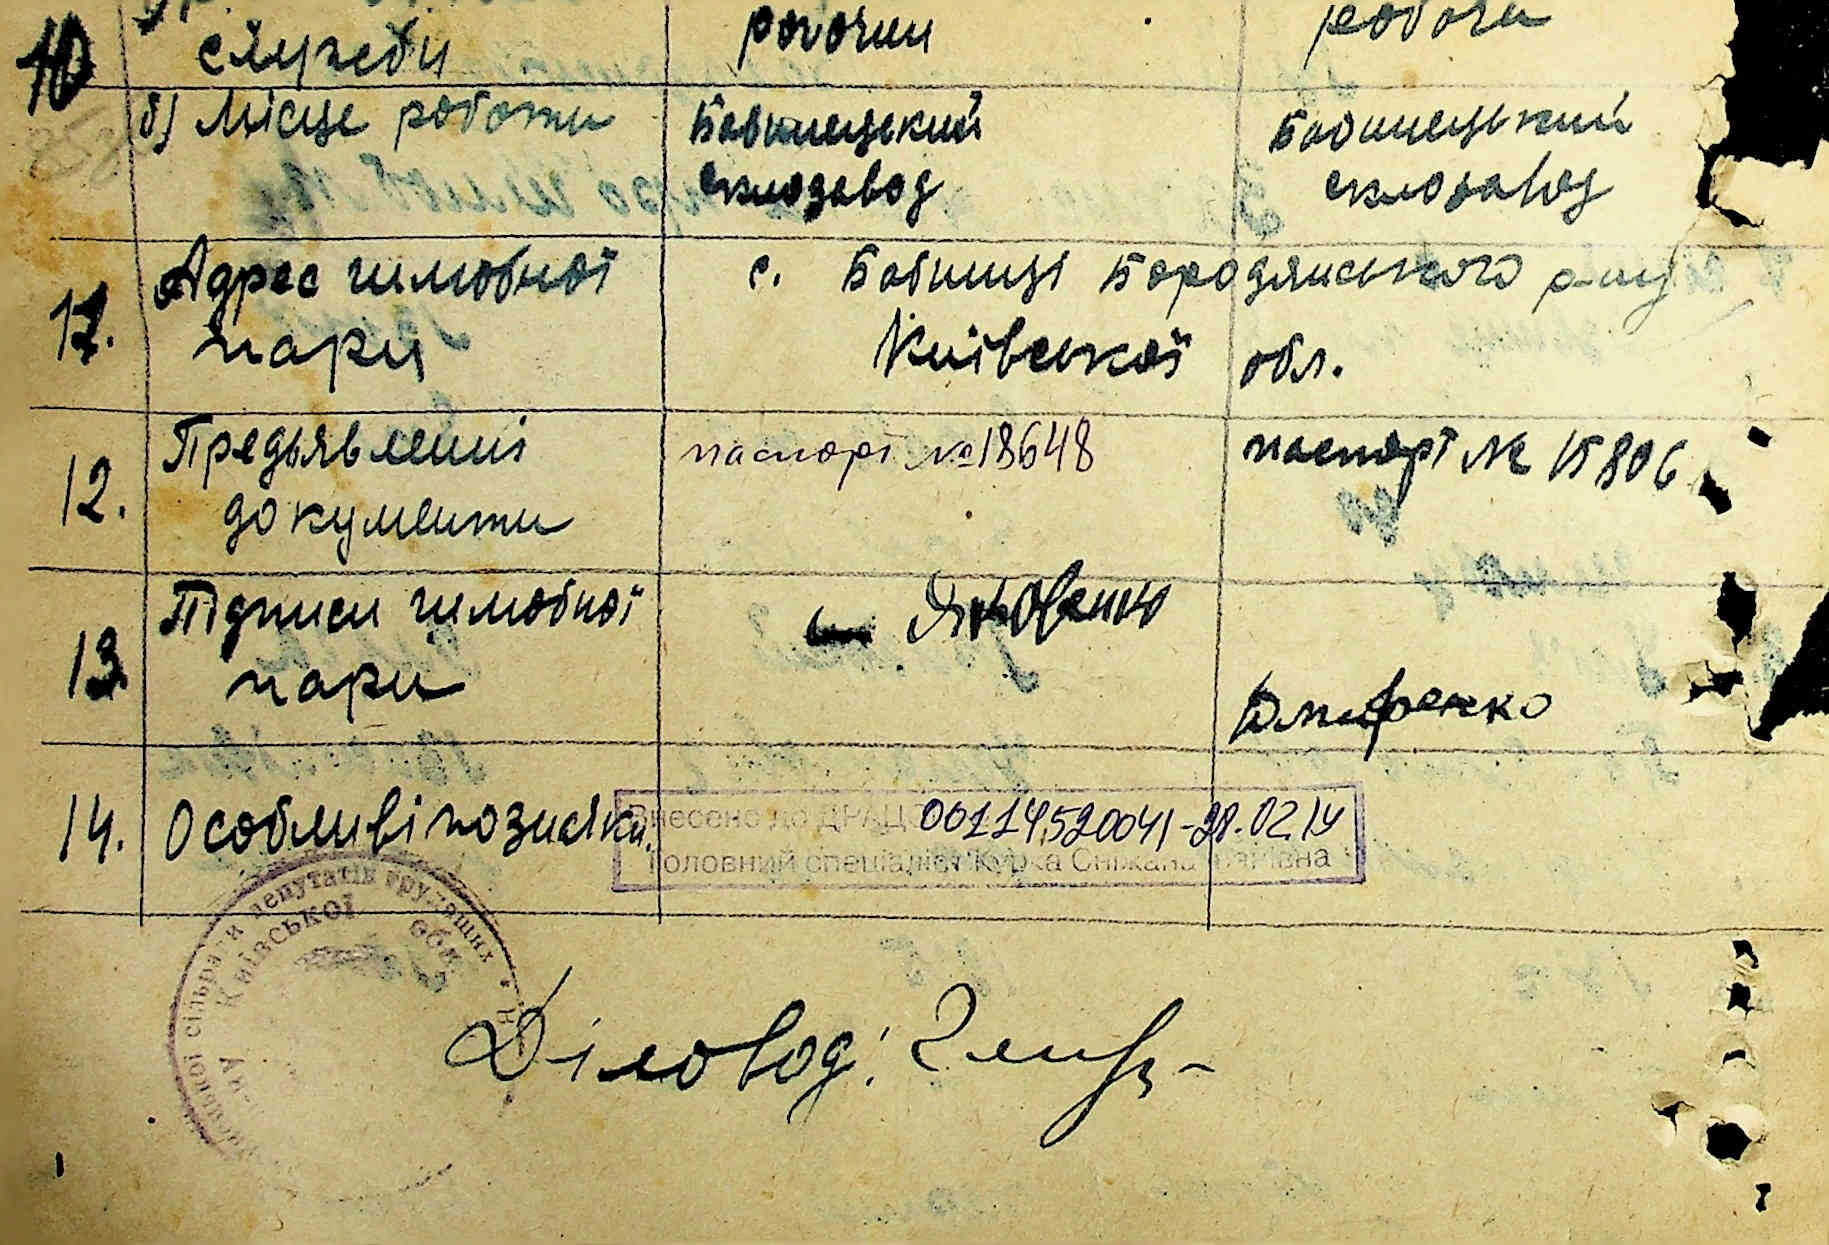 10 служби робочий робоча
б) Місце роботи Бабинецький Бабинецький
склозавод склозавод
11. Адрес шлюбної с. Бабинці Бородянського р-ну
пари Київської обл.
12. Предьявлені паспорт №18648 паспорт № 15806
документи
13. Підписи шлюбної Яковенко
пари
14. Особливі позначки.
Внесено до ДРАЦ 00114520041-28.02.14
Головний спеціаліст Курка Сніжана
сільради депутатів трудящих
Київської обл.
Діловод: